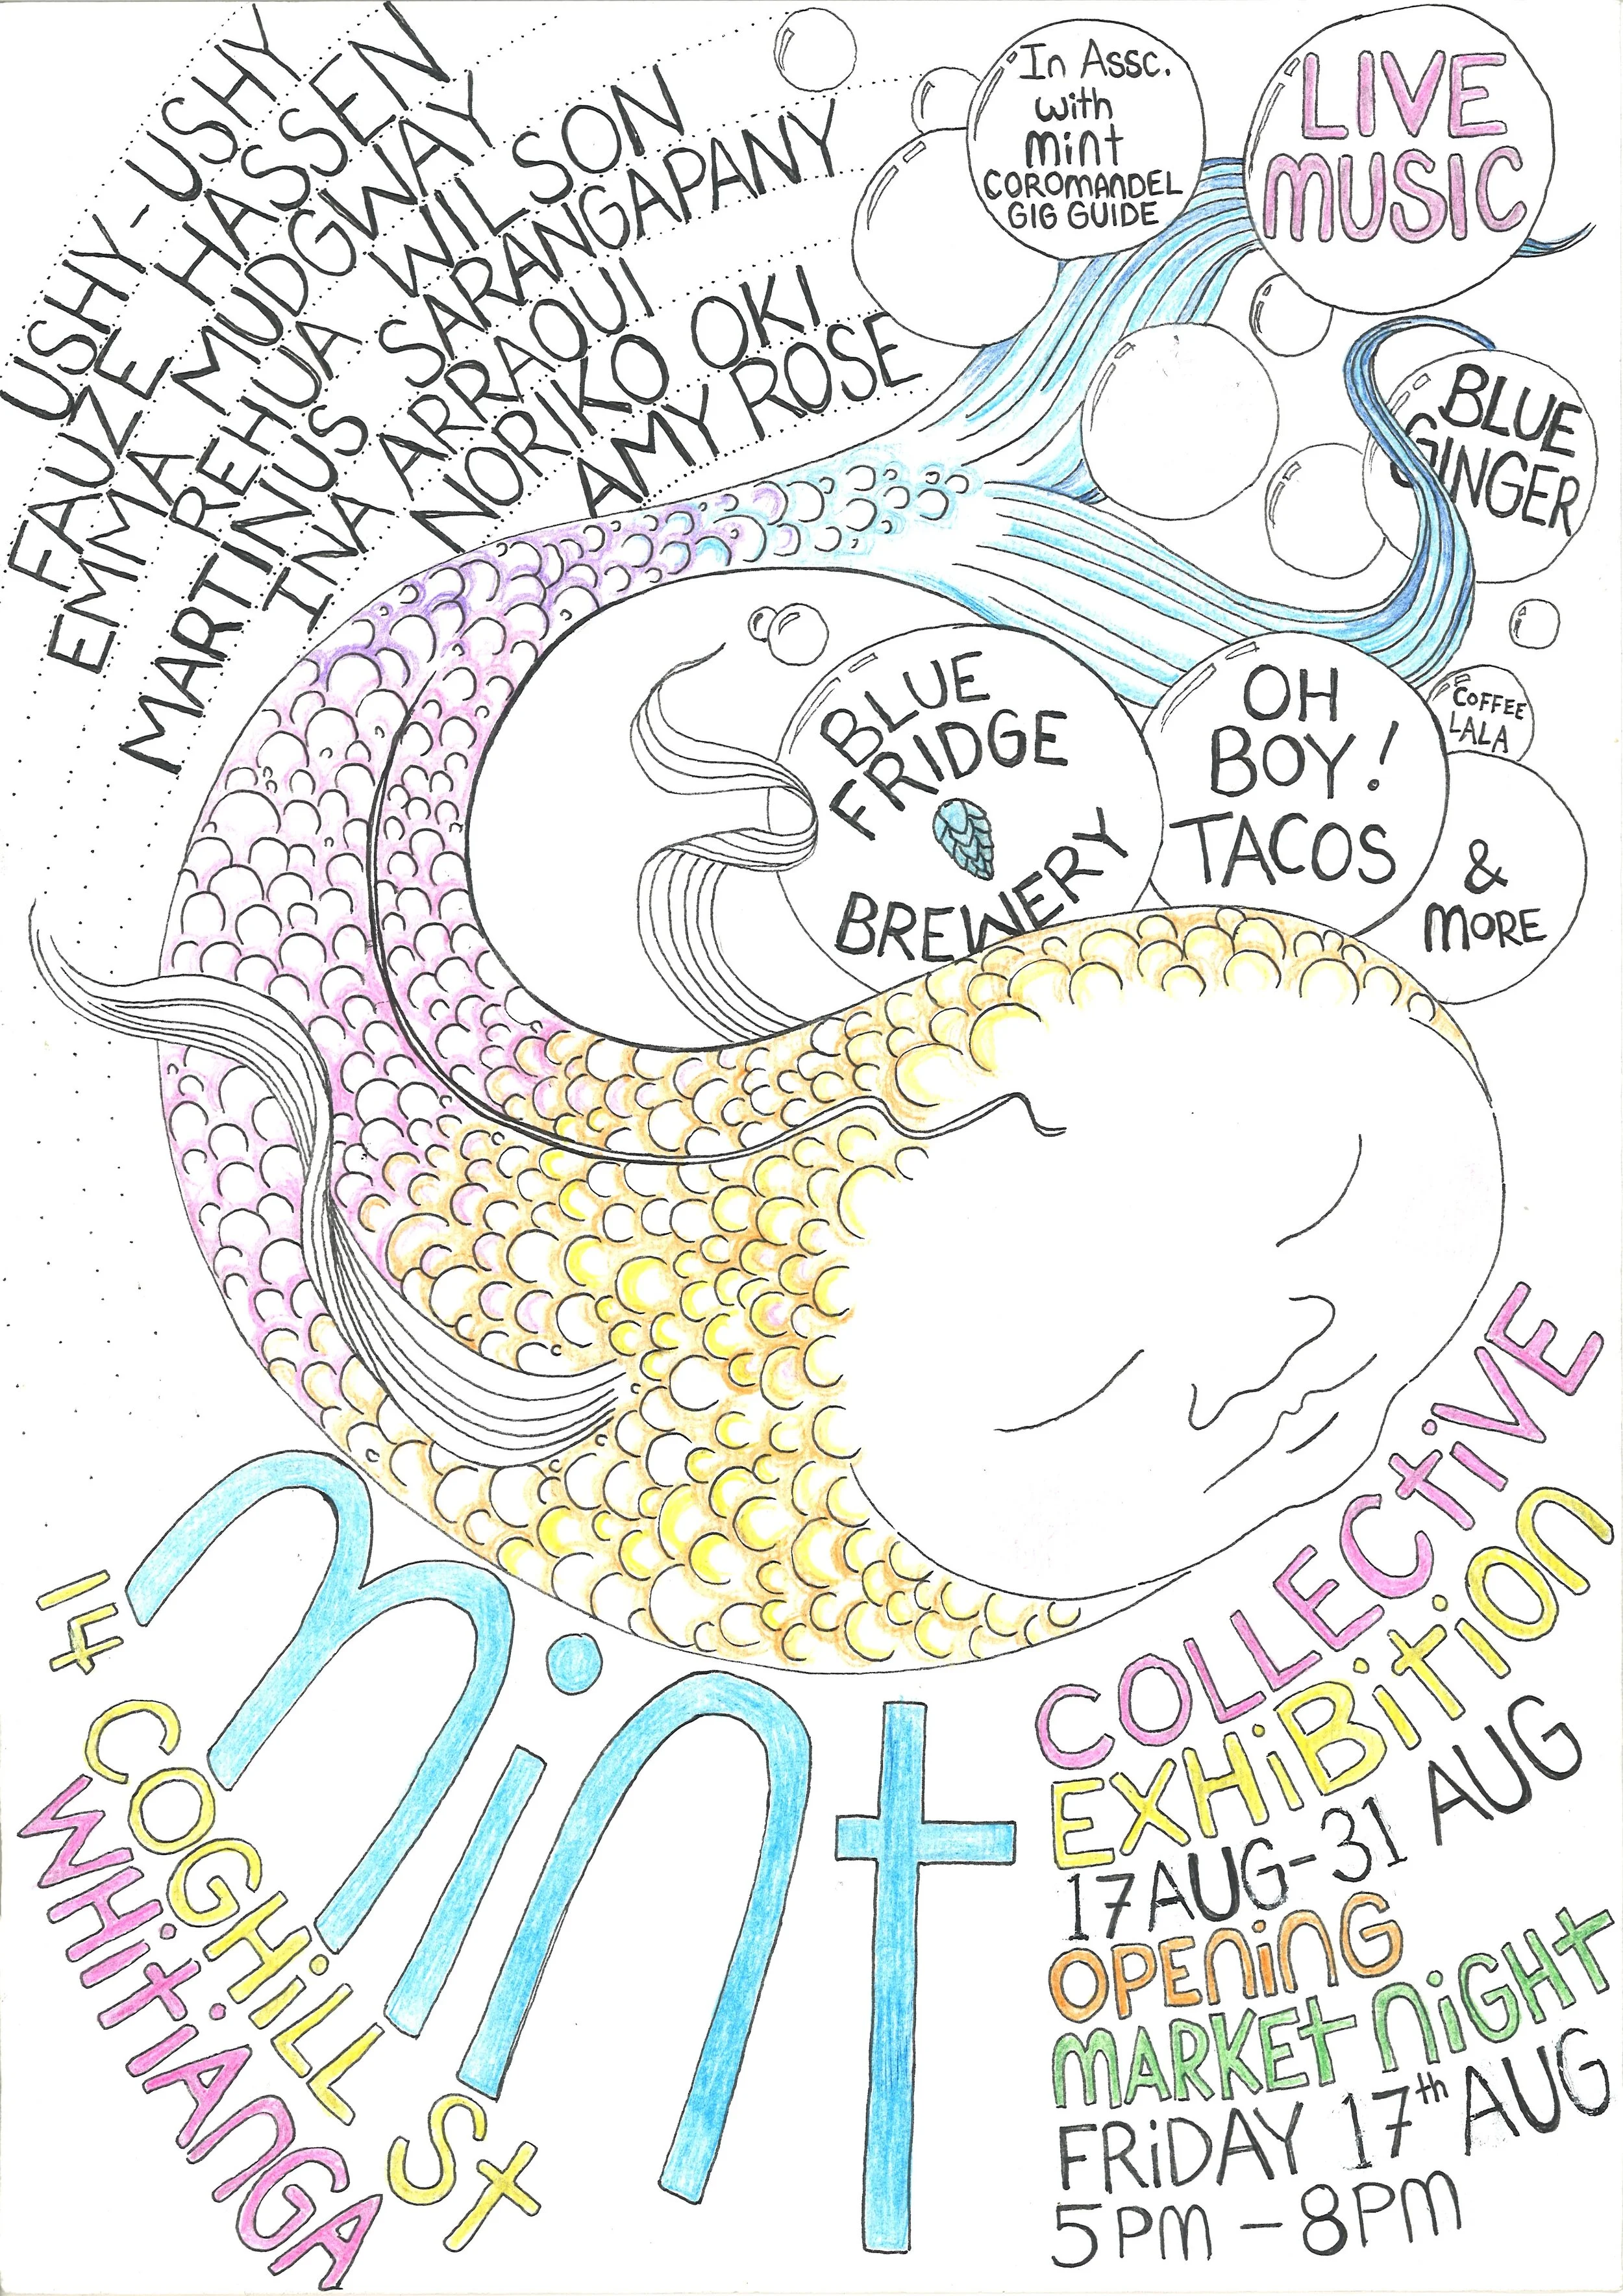 USHY-USHY
FAUZE HASSEN
EMMA MUDGWAY
REHUA WILSON
MARTINUS SARANGAPANY
INA ARRAOUI
NORIKO OKI
AMY ROSE
In Assc.
with
mint
COROMANDEL
GIG GUIDE
LIVE
MUSIC
BLUE
GINGER
BLUE
FRIDGE
BREWERY
OH
BOY!
TACOS
COFFEE
LALA
&
MORE
mint
14 COGHILL St
WHITIANGA
COLLECTIVE
EXHIBITION
17 AUG-31 AUG
OPENING
MARKET NIGHT
FRIDAY 17th AUG
5PM - 8PM